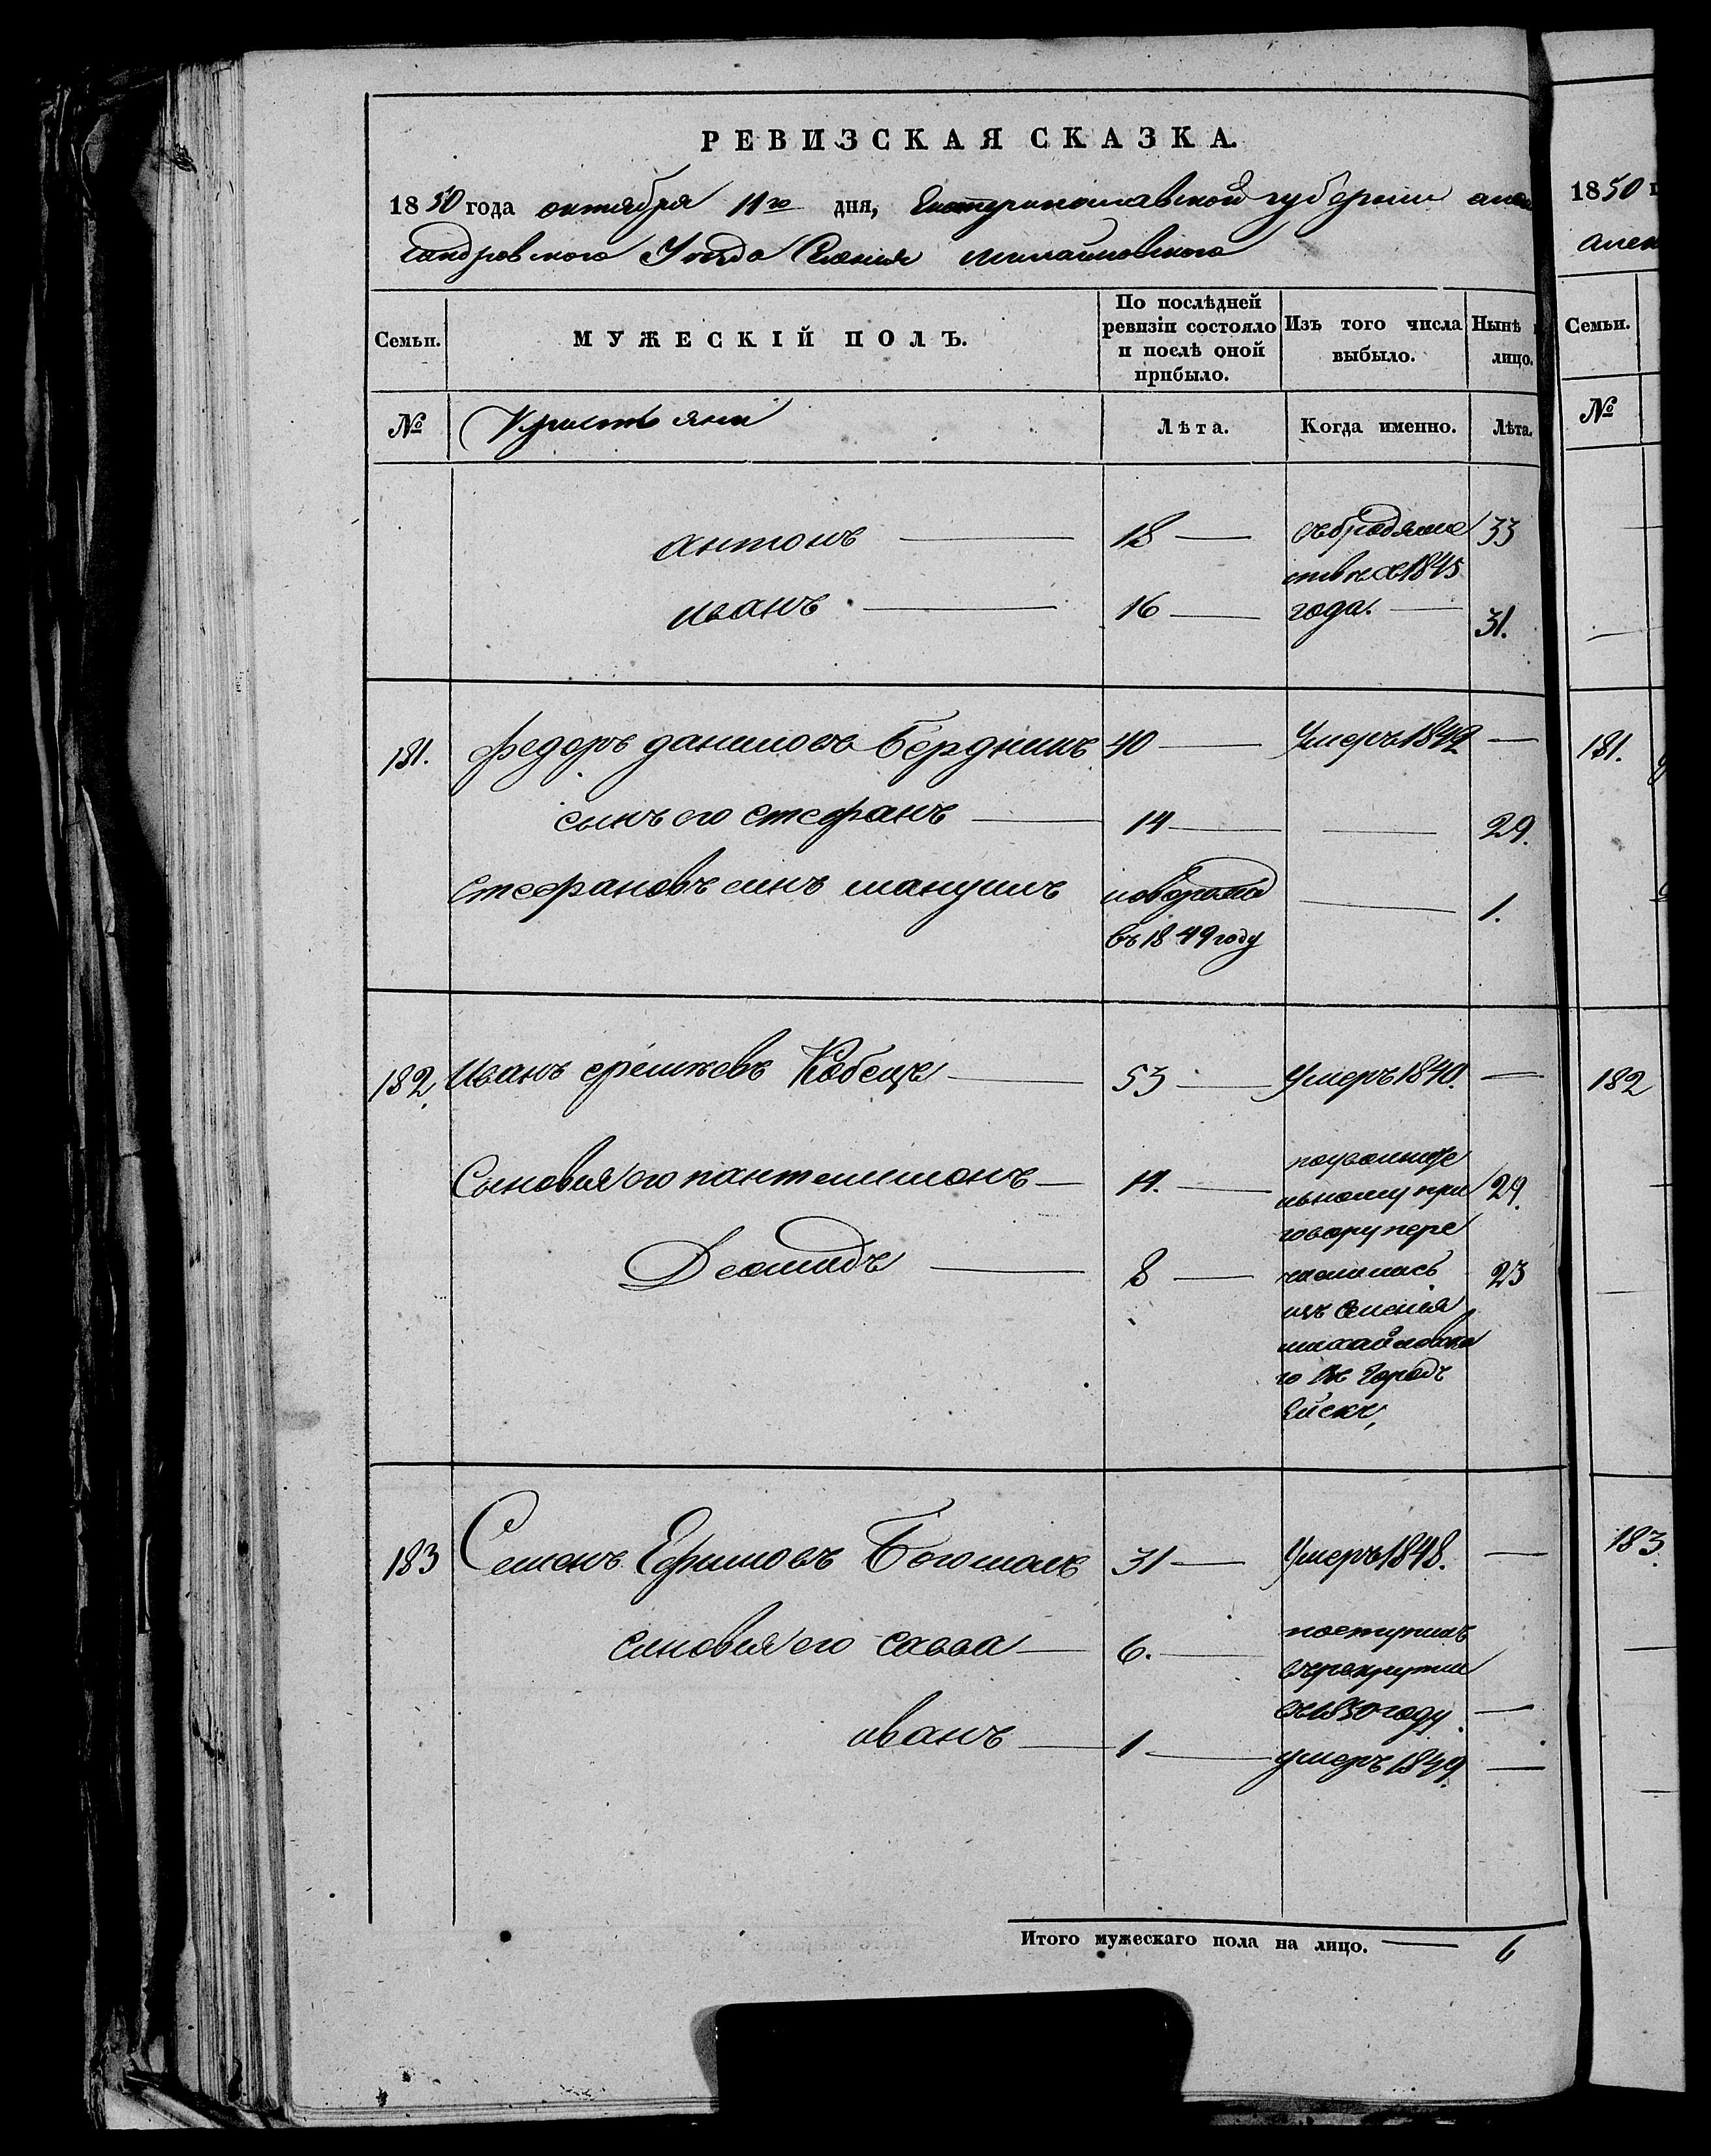 РЕВИЗСКАЯ СКАЗКА.
1850 года октября 11го дня, Екатеринославской губернии алек
сандровского Уезда Селения михайловского
Семьи.
МУЖЕСКІЙ ПОЛЪ.
По послѣдней ревизіи состояло и послѣ оной прибыло.
Изъ того числа выбыло.
Нынѣ
лицо.
№
Лѣта.
Когда именно.
Лѣта.
антонъ 18 33
1845
иванъ 16 года. 31.
181. федоръ даниловъ Бердникъ 40 Умеръ 1842
сынъ его стефанъ 14 29.
стефановъ синъ 1.
въ 1849 году
182. Иванъ 53 Умеръ 1840.
Сыновья его пантелимонъ 14. 29.
льному при
говору пере
Деомидъ 8 числились 23
изъ селения
михайловско
го въ городъ
Ейскъ,
183 Семенъ Ефимовъ 31 Умеръ 1848.
синовья его савва 6. поступилъ
въ рекруты
въ 1850 году.
иванъ 1 умеръ 1849.
Итого мужескаго пола на лицо. 6
1850
алек
Семьи.
№
181.
182
183.